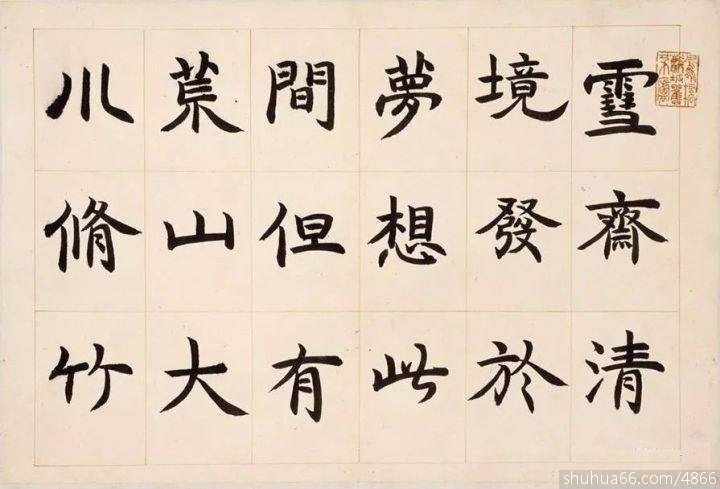 雪齋清
境發於
夢想此
間但有
荒山大
川脩竹
shuhua66.com/4866